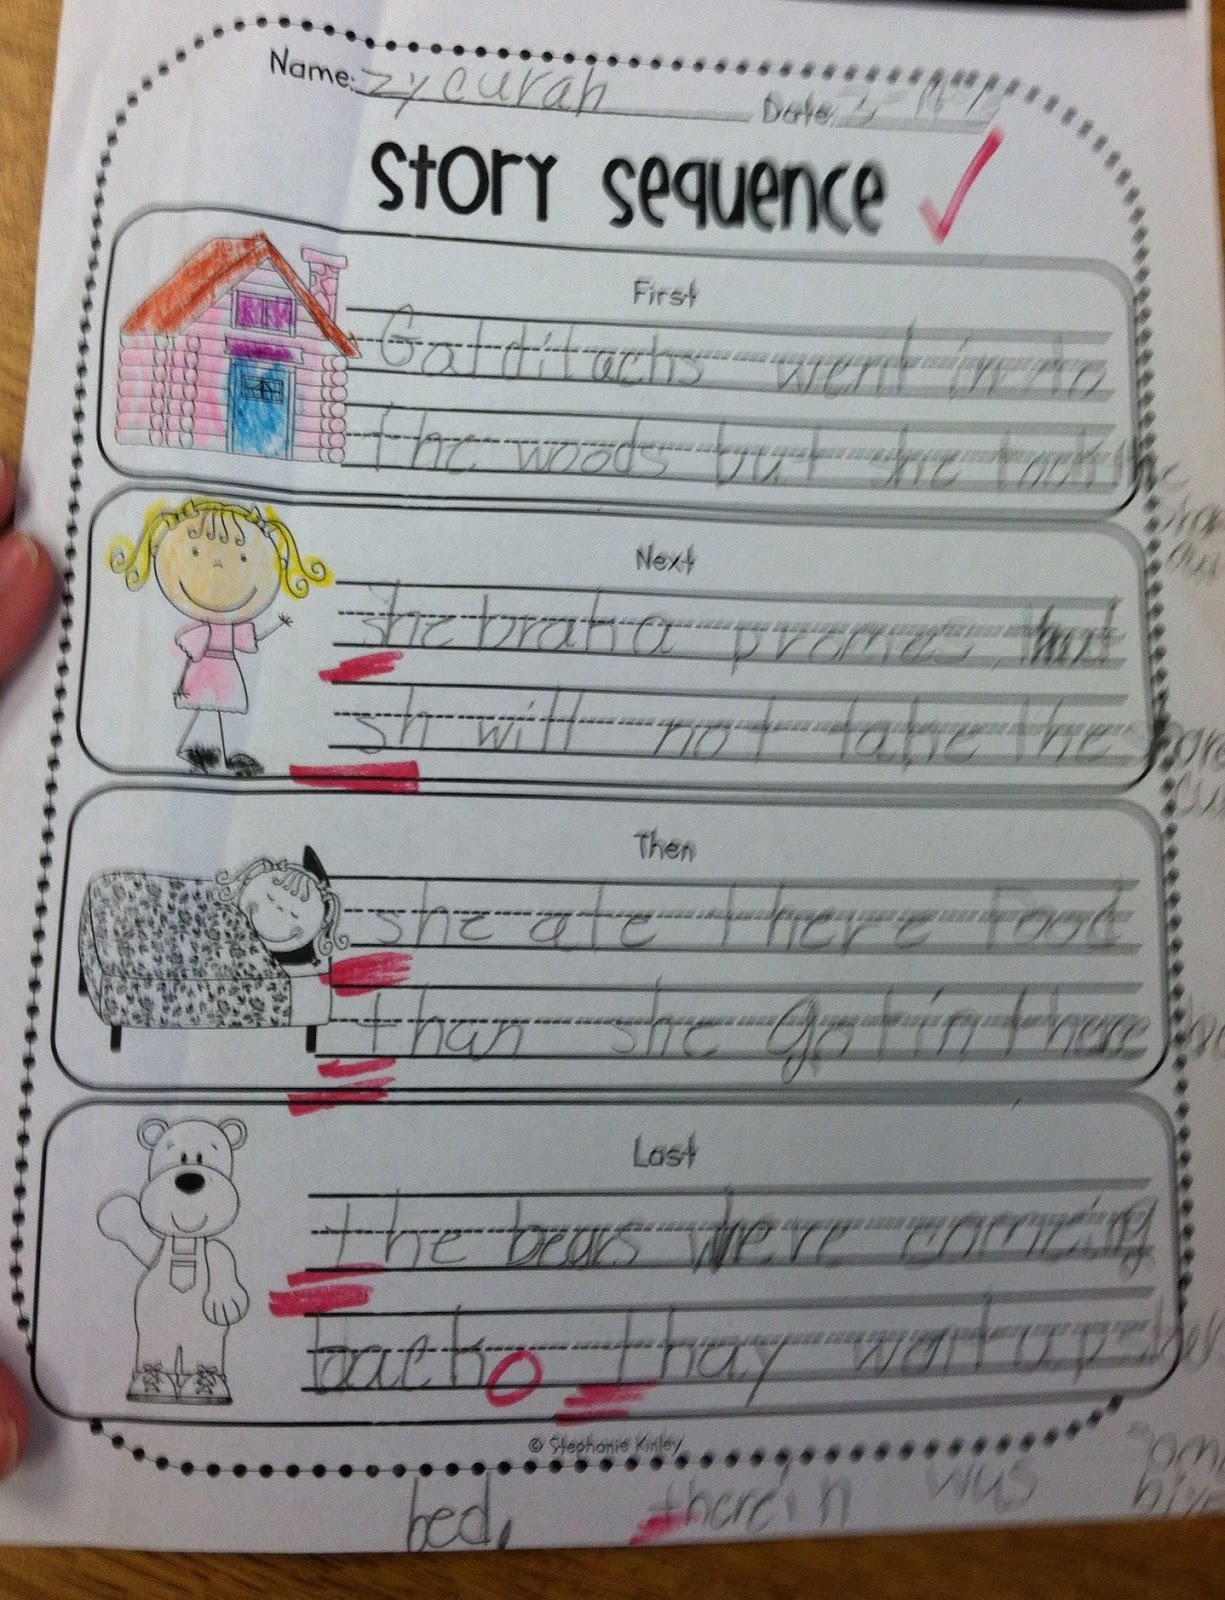 Name: zycurah Date:
Story Sequence
First
Galditachs went in to
the woods but she took the
Next
she brak a promes that
sh will not take the
Then
she ate there Food
than she got in there
Last
the bears were comeing
back thay wait upst
© Stephanie Kinley
bed, there in wus